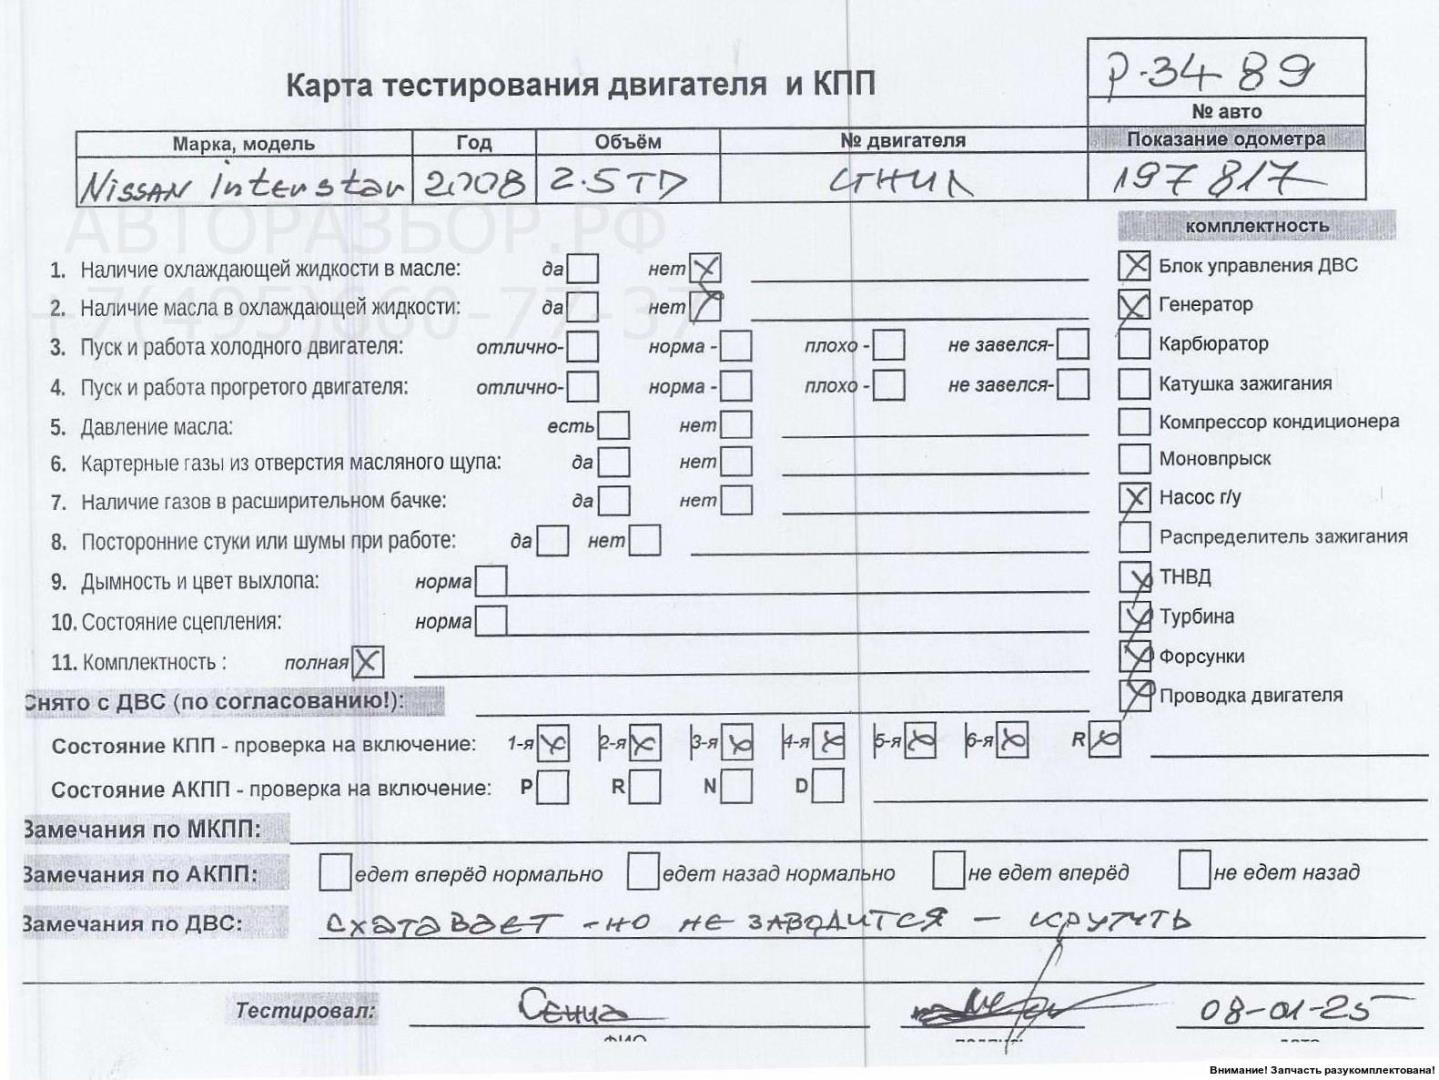 Р-3489
Карта тестирования двигателя и КПП
№ авто
Марка, модель Год Объём № двигателя Показание одометра
Nissan interstar 2008 2.5TD сгнил 197817
АВТОРАЗБОР.РФ
комплектность
1. Наличие охлаждающей жидкости в масле: да нет Блок управления ДВС
+7(495)660-77-37
2. Наличие масла в охлаждающей жидкости: да нет Генератор
3. Пуск и работа холодного двигателя: отлично- норма - плохо - не завелся- Карбюратор
4. Пуск и работа прогретого двигателя: отлично- норма - плохо - не завелся- Катушка зажигания
5. Давление масла: есть нет Компрессор кондиционера
6. Картерные газы из отверстия масляного щупа: да нет Моновпрыск
7. Наличие газов в расширительном бачке: да нет Насос г/у
8. Посторонние стуки или шумы при работе: да нет Распределитель зажигания
9. Дымность и цвет выхлопа: норма ТНВД
10. Состояние сцепления: норма Турбина
11. Комплектность : полная Форсунки
Снято с ДВС (по согласованию!): Проводка двигателя
Состояние КПП - проверка на включение: 1-я 2-я 3-я 4-я 5-я 6-я R
Состояние АКПП - проверка на включение: P R N D
Замечания по МКПП:
Замечания по АКПП: едет вперёд нормально едет назад нормально не едет вперёд не едет назад
Замечания по ДВС: схатавает - но не заводится - крутить
Тестировал: 08-01-25
ФИО подпись дата
Внимание! Запчасть разукомплектована!